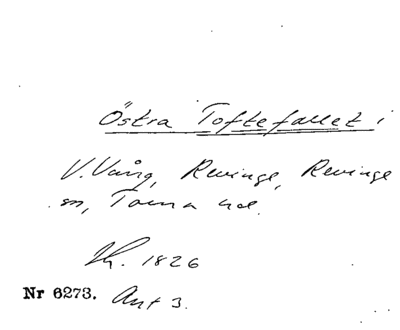 Östra Toftefallet i
V. Vång, Revinge, Revinge
sn, Torna hd.
K. 1826
Nr 6273. Ant 3.